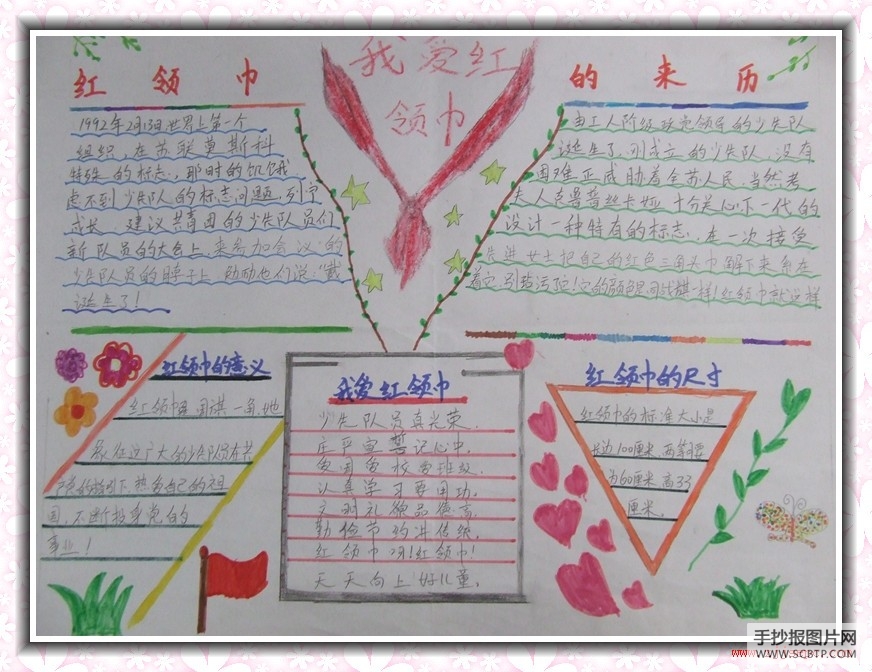 我爱红
领巾
红领巾
的来历
1992年2月13日世界上第一个
组织,在苏联莫斯科
特殊的标志,那时的饥饿我
虑不到少先队的标志问题,列宁
成长,建议共青团的少先队员们
新队员的大会上,来参加会议的
少先队员的脖子上,勉励他们说:“戴
诞生了!
由工人阶级政党领导的少先队
诞生了,刚成立的少先队,没有
困难正威胁着全苏人民,当然考
夫人克鲁普丝卡娅,十分关心下一代的
设计一种特有的标志,在一次接受
先进女士把自己的红色三角头巾解下来系在
着它,别玷污它!它的颜色是同战旗一样!红领巾就这样
红领巾的意义
红领巾是国旗一角,她
广大的少先队员在共
热爱自己的祖
国,不断投身党的
事业!
我爱红领巾
少先队员真光荣,
庄严宣誓记心中,
爱国爱校爱班级,
认真学习要用功,
文明礼貌品德高
勤俭节约讲传统,
红领巾呀!红领巾!
天天向上好儿童。
红领巾的尺寸
红领巾的标准大小是
长边100厘米,两等腰
为60厘米,高33
厘米。
手抄报图片网
www.SCBTP.COM